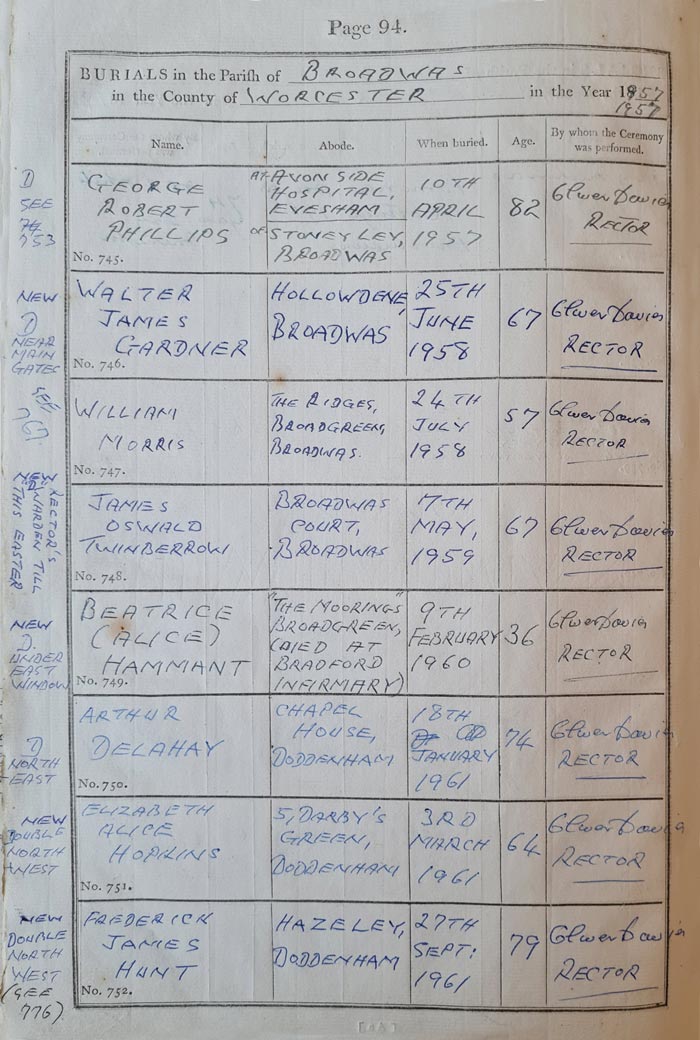 Page 94.
BURIALS in the Parish of BROADWAS
in the County of WORCESTER in the Year 1957
1957
Name. Abode. When buried. Age. By whom the Ceremony was performed.
D
SEE
753
GEORGE
ROBERT
PHILLIPS
No. 745.
AT AVONSIDE
HOSPITAL,
EVESHAM
OF STONEY LEY,
BROADWAS
10TH
APRIL
1957
82
Davies
RECTOR
NEW
D
NEAR
MAIN
GATES
WALTER
JAMES
GARDNER
No. 746.
HOLLOWDENE,
BROADWAS
25TH
JUNE
1958
67
Davies
RECTOR
SEE
767
WILLIAM
MORRIS
No. 747.
THE RIDGES,
BROADGREEN,
BROADWAS.
24TH
JULY
1958
57
Davies
RECTOR
NEW
D
RECTOR'S
WARDEN TILL
THIS EASTER
JAMES
OSWALD
TWINBERROW
No. 748.
BROADWAS
COURT,
BROADWAS
7TH
MAY,
1959
67
Davies
RECTOR
NEW
D.
UNDER
EAST
WINDOW
BEATRICE
(ALICE)
HAMMANT
No. 749.
"THE MOORINGS"
BROADGREEN,
(DIED AT
BRADFORD
INFIRMARY)
9TH
FEBRUARY
1960
36
Davies
RECTOR
D
NORTH
EAST
ARTHUR
DELAHAY
No. 750.
CHAPEL
HOUSE,
DODDENHAM
18TH
JANUARY
1961
74
Davies
RECTOR
NEW
DOUBLE
NORTH
WEST
ELIZABETH
ALICE
HOPKINS
No. 751.
5, DARBY'S
GREEN,
DODDENHAM
3RD
MARCH
1961
64
Davies
RECTOR
NEW
DOUBLE
NORTH
WEST
(SEE
776)
FREDERICK
JAMES
HUNT
No. 752.
HAZELEY,
DODDENHAM
27TH
SEPT:
1961
79
Davies
RECTOR